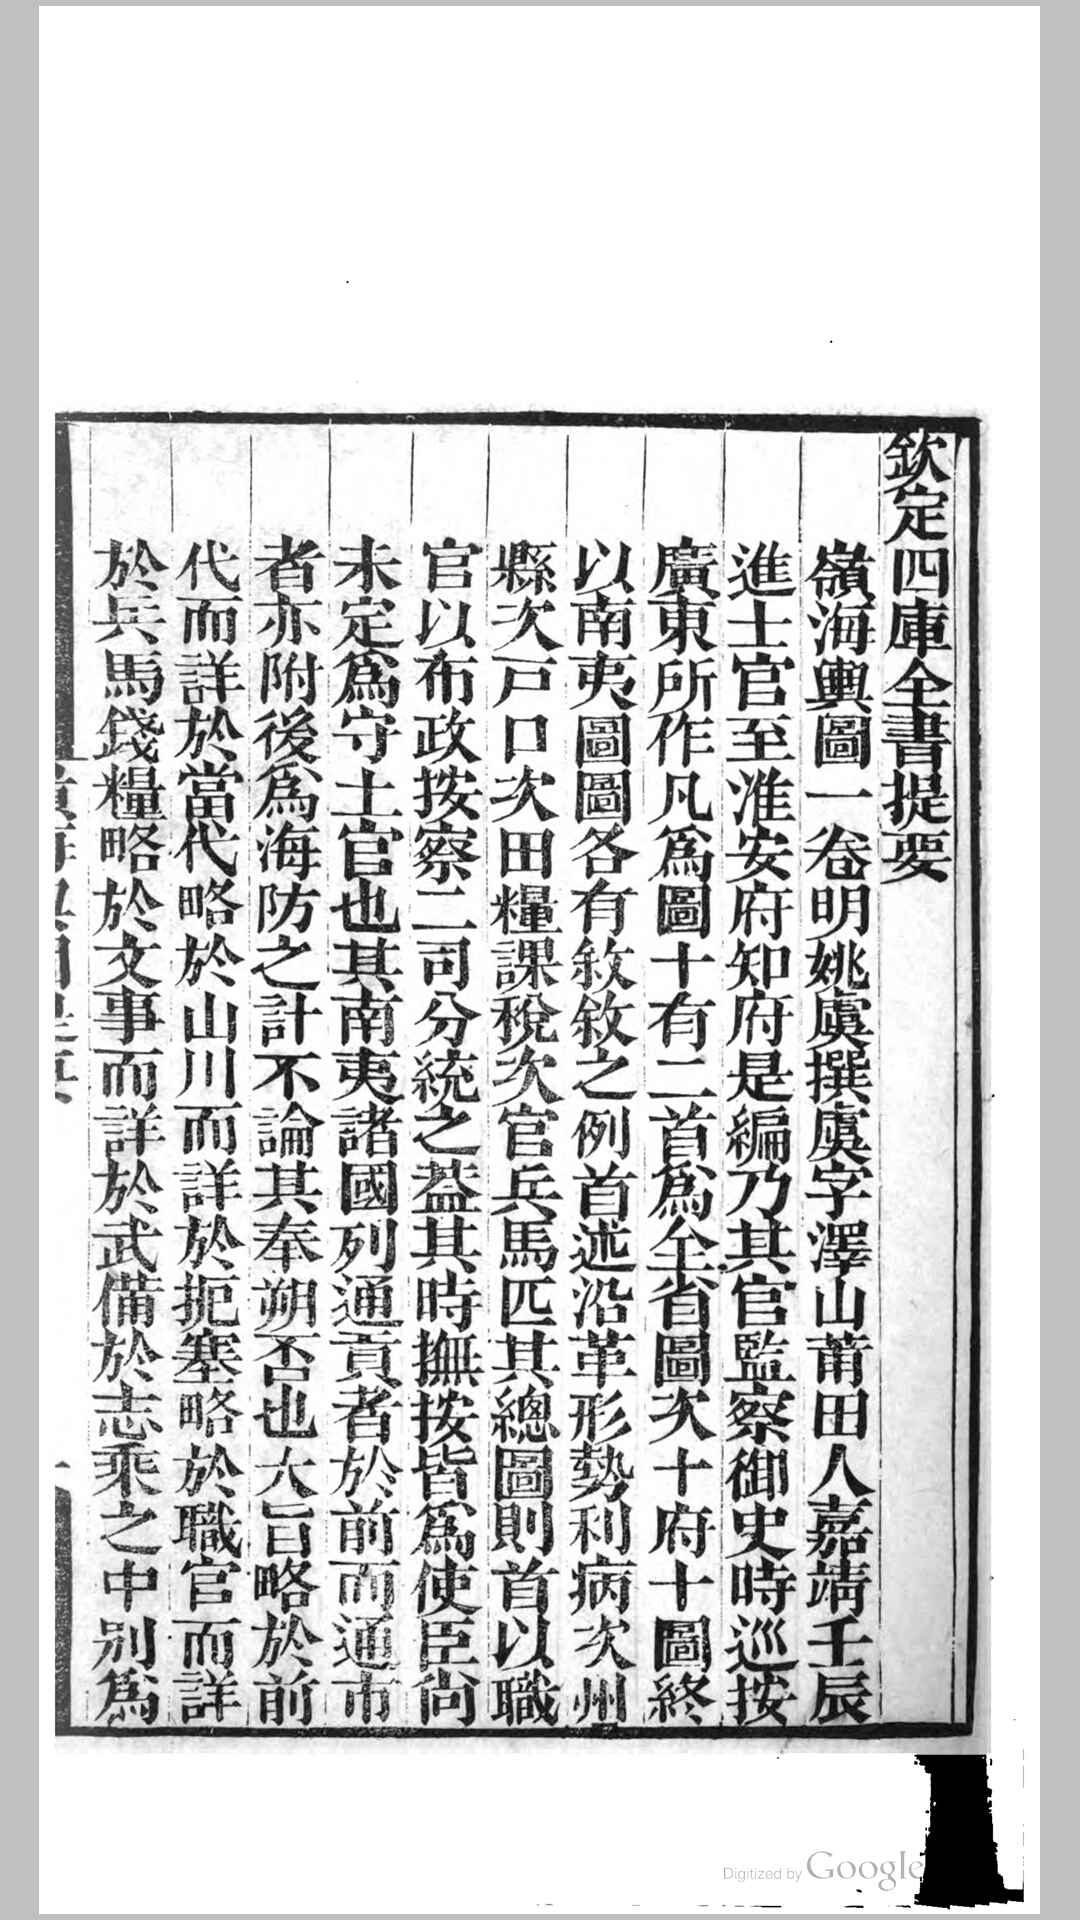 欽定四庫全書提要
嶺海輿圖一卷明姚虞撰虞字澤山莆田人嘉靖壬辰
進士官至淮安府知府是編乃其官監察御史時巡按
廣東所作凡爲圖十有二首爲全省圖次十府十圖終
以南夷圖圖各有敘敘之例首述沿革形勢利病次州
縣次戸口次田糧課稅次官兵馬匹其總圖則首以職
官以布政按察二司分統之葢其時撫按皆爲使臣尙
未定爲守土官也其南夷諸國列通貢者於前而通市
者亦附後爲海防之計不論其奉朔否也大旨略於前
代而詳於當代略於山川而詳於扼塞略於職官而詳
於兵馬錢糧略於文事而詳於武備於志乘之中別爲
Digitized by Google